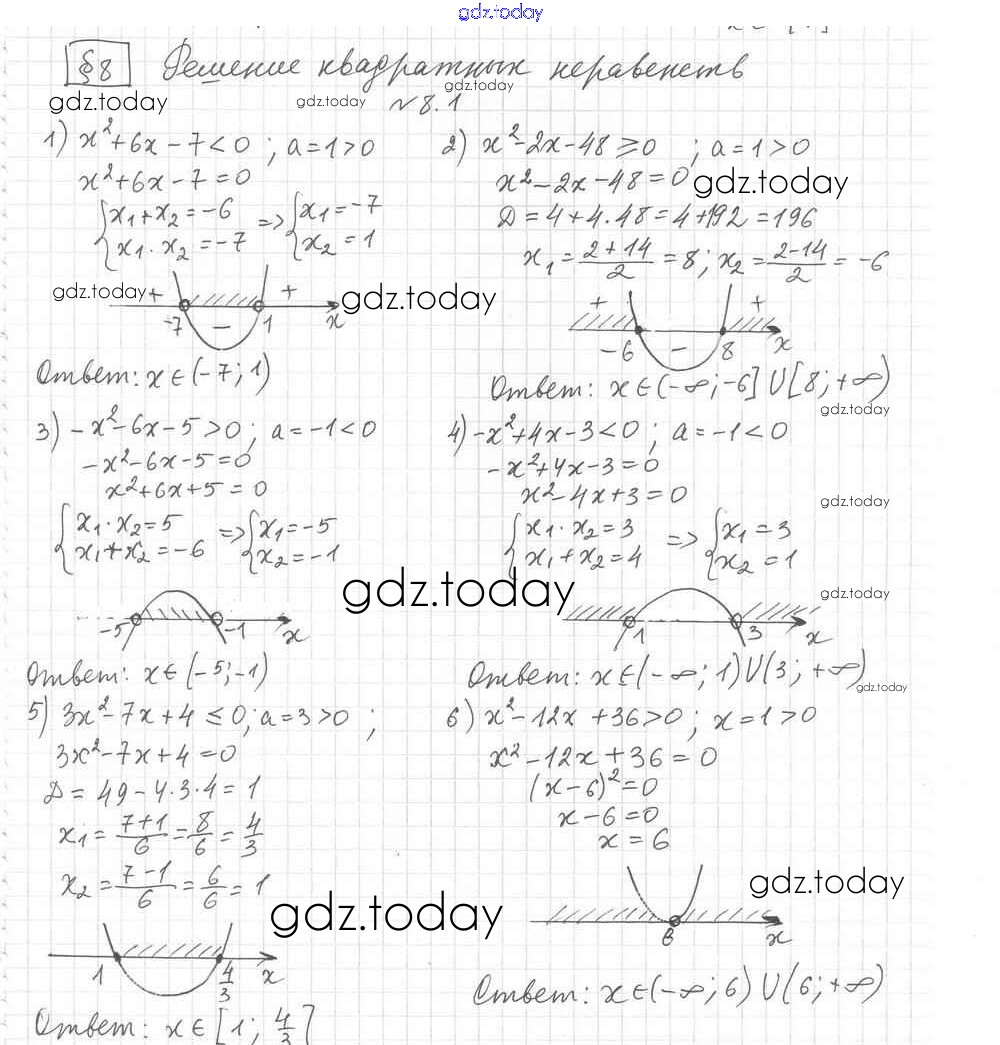 gdz.today
§8 Решение квадратных неравенств
gdz.today gdz.today gdz.today
№8.1
1) x²+6x-7<0 ; a=1>0
x²+6x-7=0
{x₁+x₂=-6 => {x₁=-7
{x₁·x₂=-7 {x₂=1
gdz.today + + gdz.today
-7 - 1 x
Ответ: x∈(-7;1)
2) x²-2x-48≥0 ; a=1>0
x²-2x-48=0 gdz.today
Д=4+4·48=4+192=196
x₁=(2+14)/2=8; x₂=(2-14)/2=-6
+ +
-6 - 8 x
Ответ: x∈(-∞;-6]∪[8;+∞)
gdz.today
3) -x²-6x-5>0; a=-1<0
-x²-6x-5=0
x²+6x+5=0
{x₁·x₂=5 => {x₁=-5
{x₁+x₂=-6 {x₂=-1
gdz.today
-5 -1 x
Ответ: x∈(-5;-1)
4) -x²+4x-3<0; a=-1<0
-x²+4x-3=0
x²-4x+3=0
gdz.today
{x₁·x₂=3 => {x₁=3
{x₁+x₂=4 {x₂=1
gdz.today
1 3 x
Ответ: x∈(-∞;1)∪(3;+∞)
gdz.today
5) 3x²-7x+4≤0; a=3>0 ;
3x²-7x+4=0
Д=49-4·3·4=1
x₁=(7+1)/6=8/6=4/3
x₂=(7-1)/6=6/6=1
gdz.today
1 4/3 x
Ответ: x∈[1; 4/3]
6) x²-12x+36>0; x=1>0
x²-12x+36=0
(x-6)²=0
x-6=0
x=6
gdz.today
6 x
Ответ: x∈(-∞;6)∪(6;+∞)